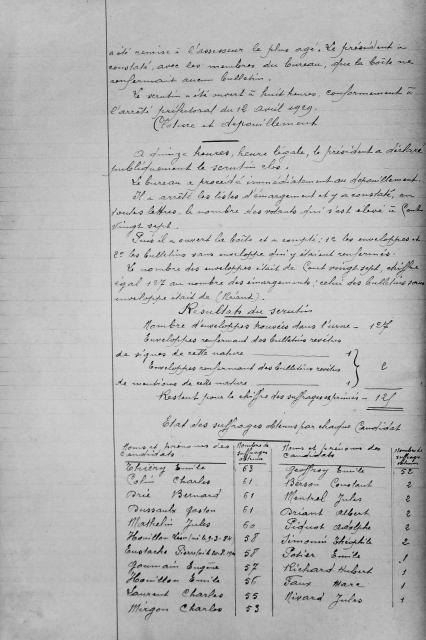 a été remise à l'assesseur le plus agé. Le président a
constaté, avec les membres du bureau, que la boîte ne
renfermait aucun bulletin.
Le scrutin a été ouvert à huit heures, conformément à
l'arrêté préfectoral du 12 avril 1929.
Clôture et dépouillement
A onze heures, heure légale, le président a déclaré
publiquement le scrutin clos.
Le bureau a procédé immédiatement au dépouillement.
Il a arrêté les listes d'émargement et y a constaté, en
toutes lettres, le nombre des votants qui s'est élevé à Cent
vingt sept.
Puis il a ouvert la boîte et a compté : 1° les enveloppes et
2° les bulletins sans enveloppe qui y étaient renfermés.
Le nombre des enveloppes était de Cent vingt sept, chiffre
égal 127 au nombre des émargements ; celui des bulletins sans
enveloppe était de (Néant).
Résultats du scrutin
Nombre d'enveloppes trouvées dans l'urne - 127
Enveloppes renfermant des bulletins revêtus
de signes de cette nature 1
Enveloppes renfermant des bulletins revêtus 2
de mentions de cette nature 1
Restent pour le chiffre des suffrages exprimés - 125
Etat des suffrages obtenus par chaque Candidat
Noms et prénoms des Candidats Nombre de suffrages obtenus Noms et prénoms des Candidats Nombre de suffrages obtenus
Thiéry Emile 63 Geoffroy Emile 52
Colin Charles 61 Berson Constant 2
Drié Bernard 61 Menrel Jules 2
Dussaulx Gaston 61 Driant Albert 2
Mathelin Jules 60 Pidust Adolphe 2
Houillon 58 Simonin Théophile 2
Eustache 58 Potier Emile 1
Jeumain Eugène 57 Richard Hubert 1
Houillon Emile 56 Faux Marc 1
Laurent Charles 55 Nivard Jules 1
Mirgon Charles 53